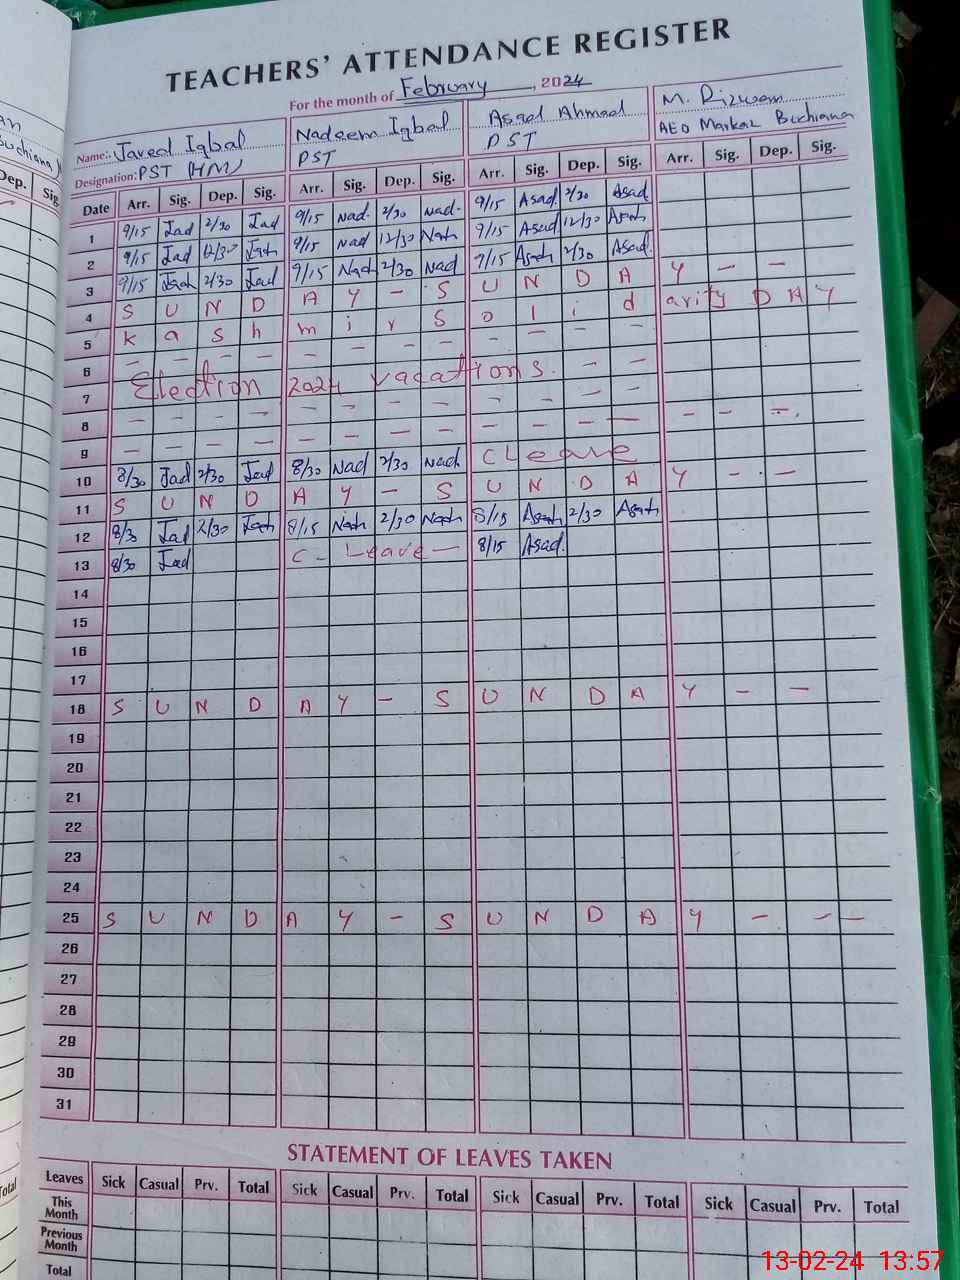 TEACHERS' ATTENDANCE REGISTER
For the month of February, 2024
Name: Javed Iqbal Nadeem Iqbal Asad Ahmad M. Rizwan
Designation: PST (HM) PST PST AEO Markaz Buchiana
Date Arr. Sig. Dep. Sig. Arr. Sig. Dep. Sig. Arr. Sig. Dep. Sig. Arr. Sig. Dep. Sig.
1 9/15 Jad 2/30 Jad 9/15 Nad. 2/30 Nad. 9/15 Asad 2/30 Asad
2 9/15 Jad 12/30 9/15 Nad 12/30 9/15 Asad 12/30
3 9/15 2/30 Jad 9/15 2/30 Nad 9/15 2/30 Asad.
4 S U N D A Y - S U N D A Y - -
5 K a s h m i r S o l i d arity D A Y
6 - - - - - - - - - - - -
7 Election 2024 vacations. - -
8 - - - - - - - - - - - -
9 - - - - - - - - - - - - - - -.
10 8/30 Jad 2/30 Jad 8/30 Nad 2/30 Nad. C Leave
11 S U N D A Y - S U N D A Y - - -
12 8/30 Jad 2/30 8/15 2/30 8/15 2/30
13 8/30 Jad C - Leave - 8/15 Asad.
14
15
16
17
18 S U N D A Y - S U N D A Y - -
19
20
21
22
23
24
25 S U N D A Y - S U N D A Y - - -
26
27
28
29
30
31
STATEMENT OF LEAVES TAKEN
Leaves Sick Casual Prv. Total Sick Casual Prv. Total Sick Casual Prv. Total Sick Casual Prv. Total
This Month
Previous Month
Total
13-02-24 13:57